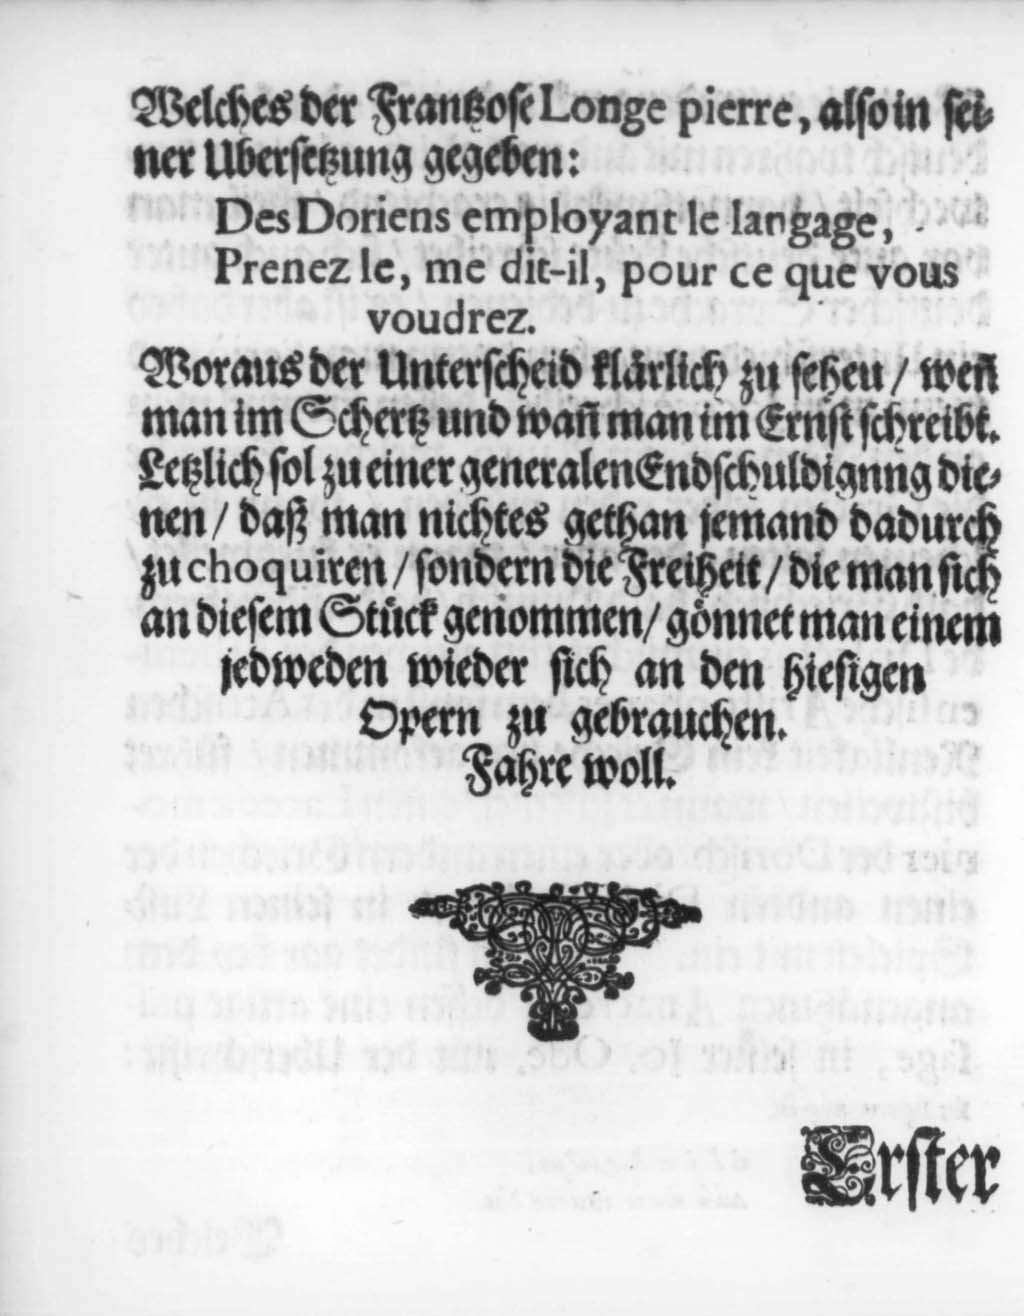 Welches der Frantzose Longe pierre, also in sei-
ner Ubersetzung gegeben:
Des Doriens employant le langage,
Prenez le, me dit-il, pour ce que vous
voudrez.
Woraus der Unterscheid klärlich zu sehen / weñ
man im Schertz und wañ man im Ernst schreibt.
Letzlich sol zu einer generalen Endschuldignng die-
nen / daß man nichtes gethan jemand dadurch
zu choquiren / sondern die Freiheit / die man sich
an diesem Stück genommen / gönnet man einem
jedweden wieder sich an den hiesigen
Opern zu gebrauchen.
Fahre woll.
Erster